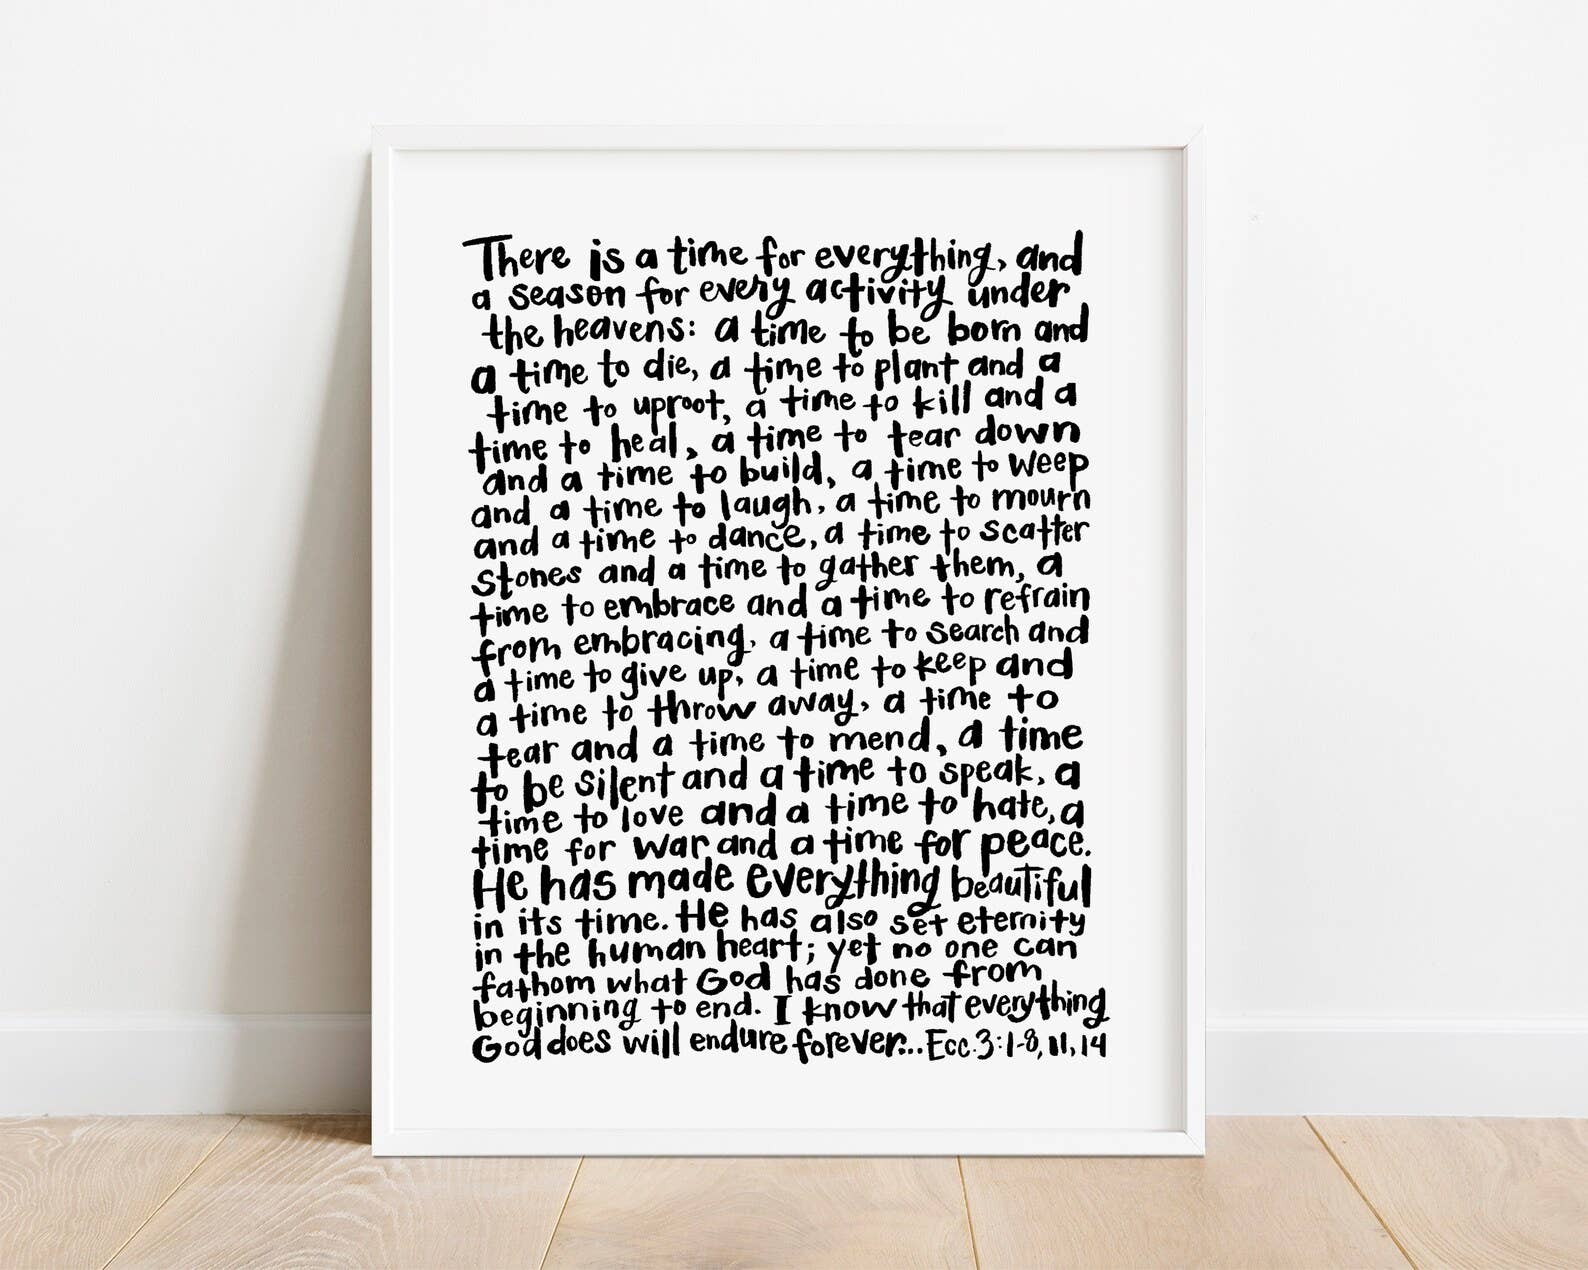 There is a time for everything, and
a season for every activity under
the heavens: a time to be born and
a time to die, a time to plant and a
time to uproot, a time to kill and a
time to heal, a time to tear down
and a time to build, a time to weep
and a time to laugh, a time to mourn
and a time to dance, a time to scatter
stones and a time to gather them, a
time to embrace and a time to refrain
from embracing, a time to search and
a time to give up, a time to keep and
a time to throw away, a time to
tear and a time to mend, a time
to be silent and a time to speak, a
time to love and a time to hate, a
time for war and a time for peace.
He has made everything beautiful
in its time. He has also set eternity
in the human heart; yet no one can
fathom what God has done from
beginning to end. I know that everything
God does will endure forever... Ecc. 3:1-8, 11, 14